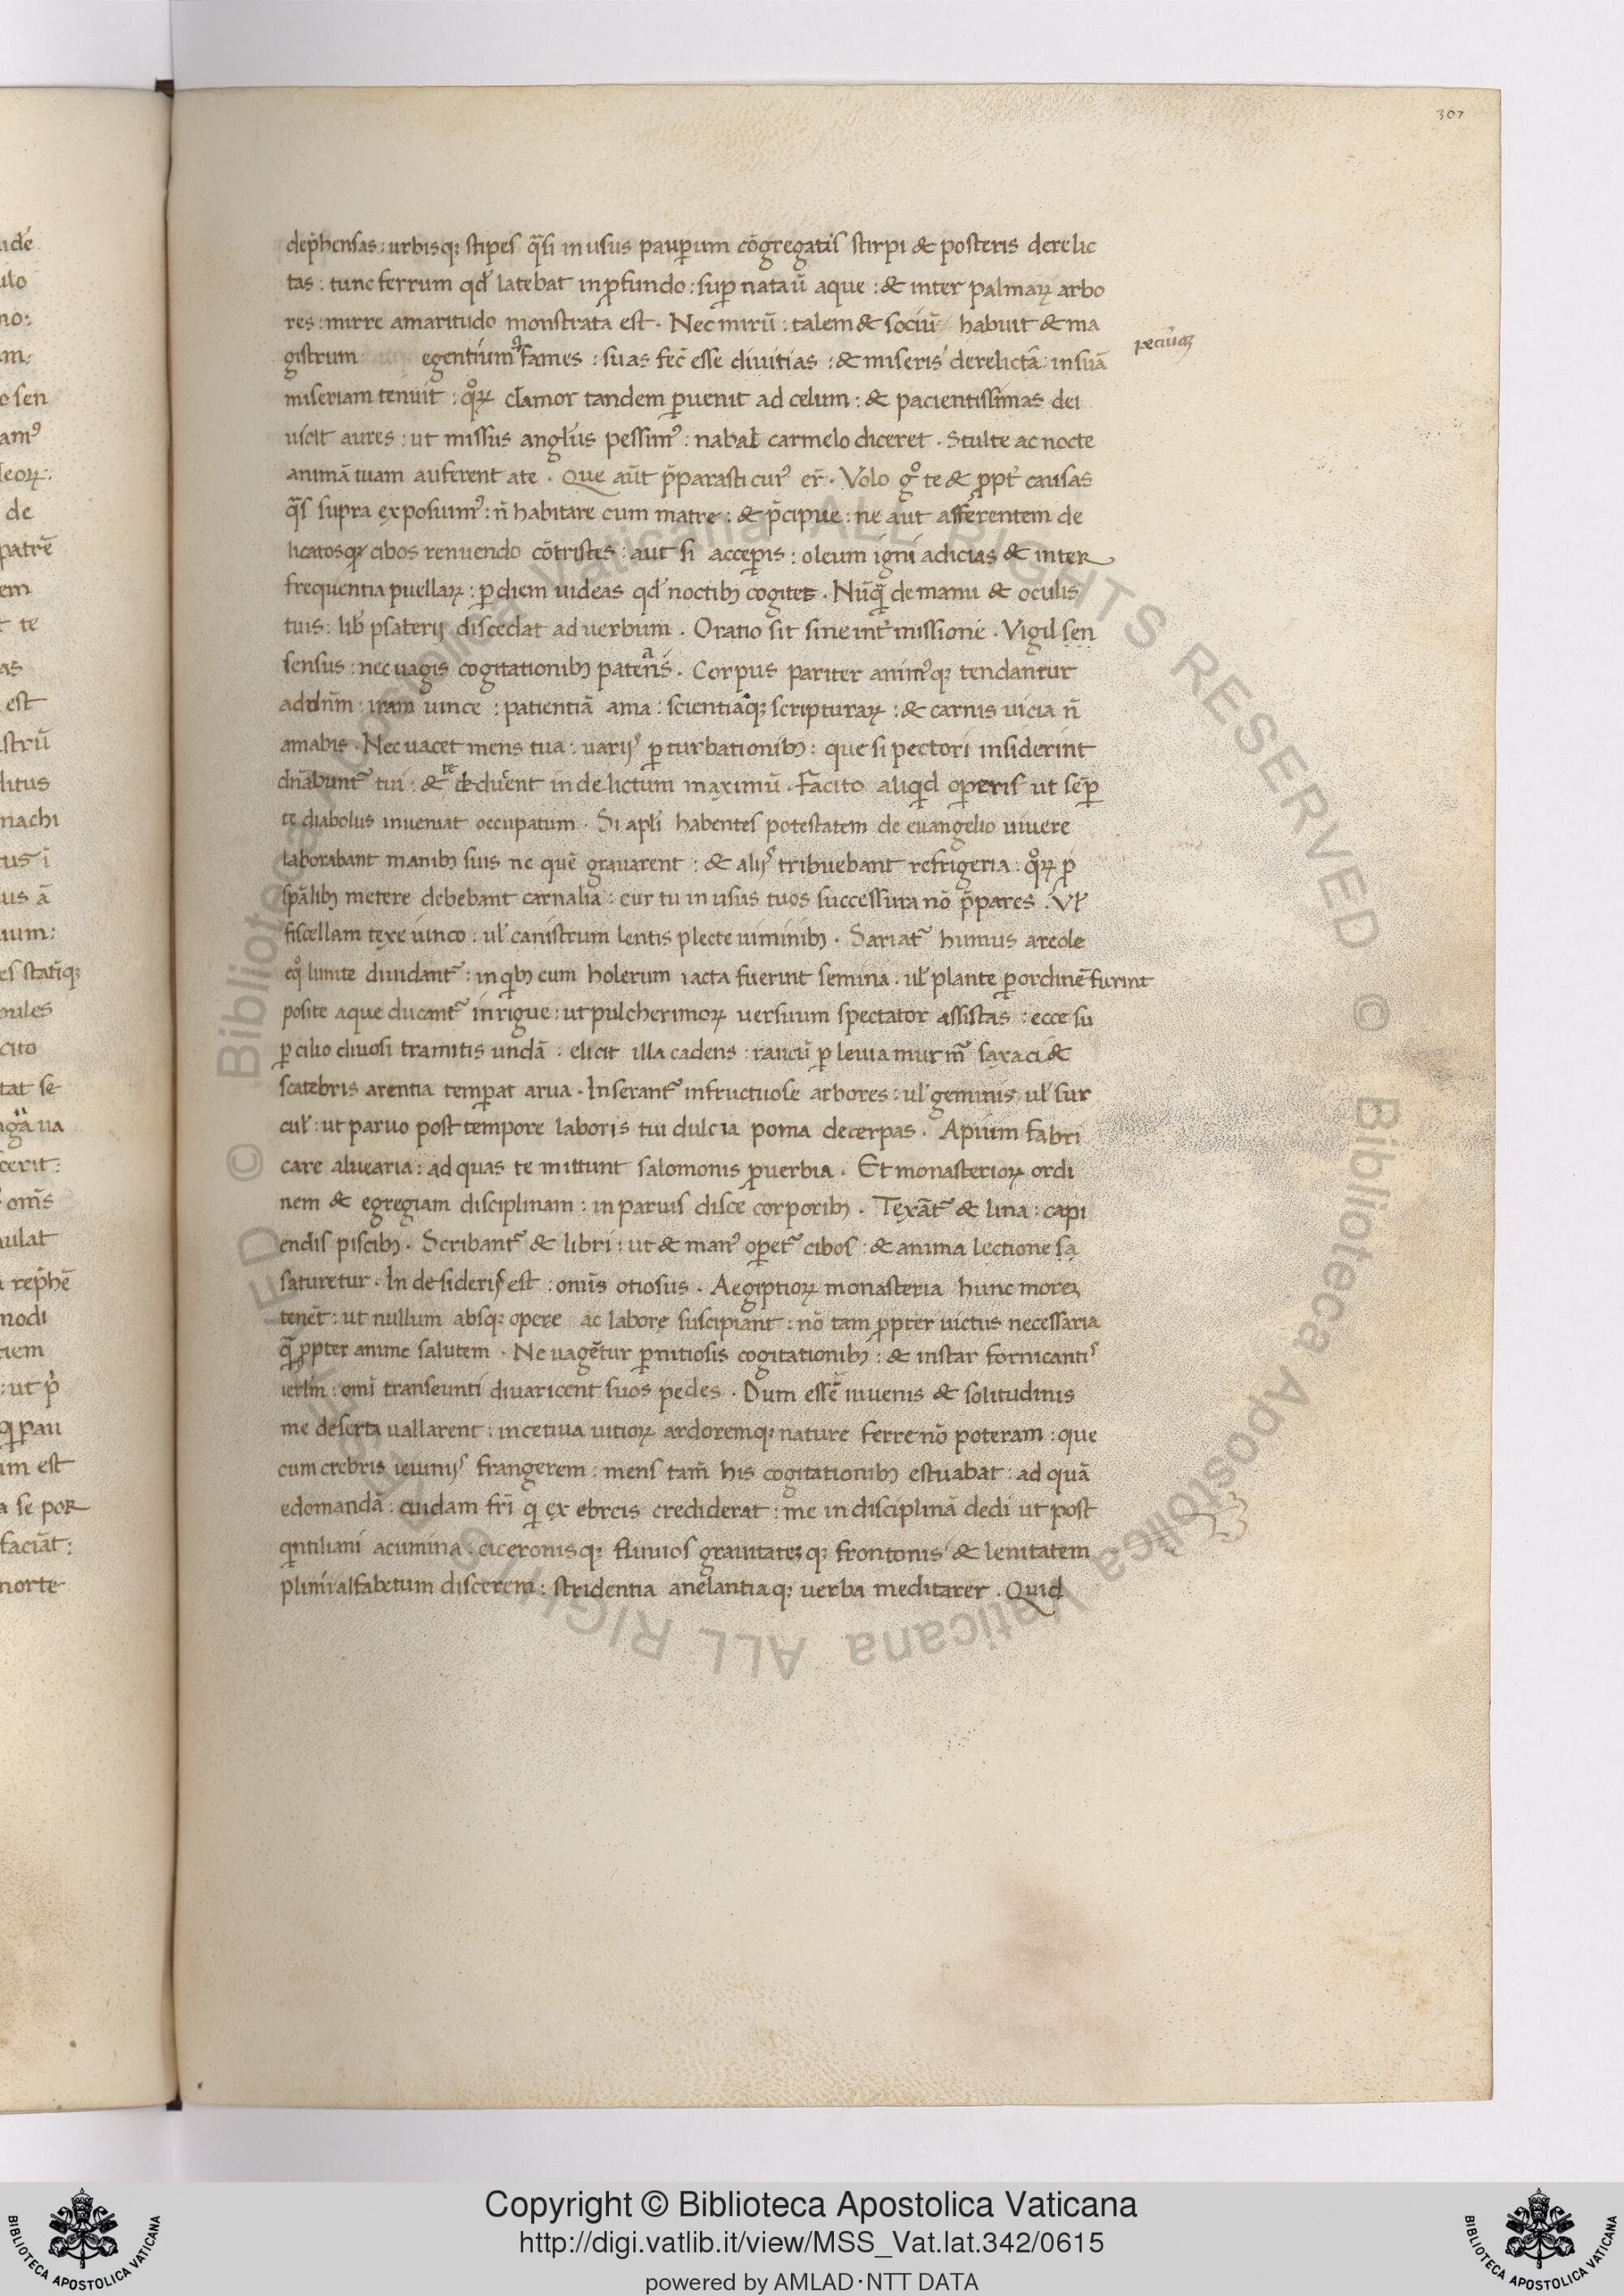 307
dep̃hensas : urbisq; stipes q̃si in usus paup̱um cõgregatis stirpi & posteris derelic
tas : tunc ferrum qđ latebat in ꝓfundo : suꝑ natauͭ aque : & inter palmaꝝ arbo
res : mirre amaritudo monstrata est . Nec mirũ : talem & sociũ habuit & ma
gistrum egentiumꝰ fames : suas fec̃ esse divitias : & miseris derelicta : in suã
peciũiaꝫ
miseriam tenuit : qͦꝝ clamor tandem ꝑuenit ad celum : & pacientissimas dei
uicit aures : ut missus angl̃us pessimꝰ : nabal carmelo diceret . Stulte ac nocte
animã tuam auferent a te . Que aũt p̃parasti cuiꝰ er̃ . Volo gͦ te & ꝓpt̃ causas
q̃s supra exposuimꝰ : ñ habitare cum matre : & p̃cipue : ne aut afferentem de
licatosq; cibos renuendo cõtristes : aut si acceꝑis : oleum igni adicias & inter
frequentia puellaꝝ : ꝑ diem uideas qđ noctibꝫ cogites . Nũq̃ de manu & oculis
tuis : lib̃ psaterij discedat ad verbum . Oratio sit sine int̃missione . Vigil sen
sensus : nec uagis cogitationibꝫ patenˢ . Corpus pariter animꝰq; tendantur
ad dñm : iram uince : patientiã ama : scientiãq; scripturaꝝ : & carnis uicia ñ
amabis . Nec uacet mens tua : uarijˢ ꝑturbationibꝫ : que si pectori insiderint
dñabunt᷑ tui : & te deduc̃ent in delictum maximũ . Facito aliqid oꝑeris ut sẽꝑ
te diabolus inueniat occupatum . Si apl̃i habentes potestatem de euangelio uiuere
laborabant manibꝫ suis ne quẽ grauarent : & alijˢ tribuebant refrigeria : qͦꝝ ꝑ
spãlibꝫ metere debebant carnalia : cur tu in usus tuos successura nõ p̃pares . Vl̃
fiscellam texe uinco : ul̃ canistrum lentis plecte uiminibꝫ . Sariat᷑ humus areole
eqͦ limite diuidant᷑ : in qͥbꝫ cum holerum iacta fuerint semina . ul̃ plante ꝑ ordinẽ furint
posite aque ducant᷑ inrigue : ut pulcherimoꝝ uersuum spectator assistas : ecce su
ꝑcilio diuosi tramitis undã : elicit illa cadens : raucũ ꝑ leuia murm̃ saxa ci&
scatebris arentia temꝑat arua . Inserant᷑ infructuose arbores : ul̃ gemmis ul̃ sur
cul̃ : ut paruo post tempore laboris tui dulcia poma decerpas . Apium fabri
care aluearia : ad quas te mittunt salomonis ꝓuerbia . Et monasterioꝝ ordi
nem & egregiam disciplinam : in paruis disce corporibꝫ . Texãt᷑ & lina : capi
endis piscibꝫ . Scribant᷑ & libri : ut & manꝰ oꝑet᷑ cibos : & anima lectione sa
saturetur . In desiderijˢ est : omĩs otiosus . Aegiptioꝝ monasteria hunc moreꝫ
tenẽt : ut nullum absq; opere ac labore suscipiant : nõ tam ꝓpter uictus necessaria
q̃ ꝓpter anime salutem . Ne uagẽtur ꝑnitiosis cogitationibꝫ : & instar fornicantiˢ
ierl̃m : omĩ transeunti diuaricent suos pedes . Dum essẽ iuuenis & solitudinis
me deserta uallarent : incetiua uitioꝝ ardoremq; nature ferre nõ poteram : que
cum crebris ieiunijˢ frangerem : mens tam̃ his cogitationibꝫ estuabat : ad quã
edomandã : cuidam fr̃i qͥ ex ebreis crediderat : me in disciplinã dedi ut post
qͥntiliani acumina : ciceronisq; fluuios grauitateꝫq; frontonis & lenitatem
plinii alfabetum discerem : stridentia anelantiaq; uerba meditarer . Quid
Copyright © Biblioteca Apostolica Vaticana
http://digi.vatlib.it/view/MSS_Vat.lat.342/0615
powered by AMLAD·NTT DATA
BIBLIOTECA APOSTOLICA VATICANA
BIBLIOTECA APOSTOLICA VATICANA
© Biblioteca Apostolica Vaticana ALL RIGHTS RESERVED © Biblioteca Apostolica Vaticana ALL RIGHTS RESERVED